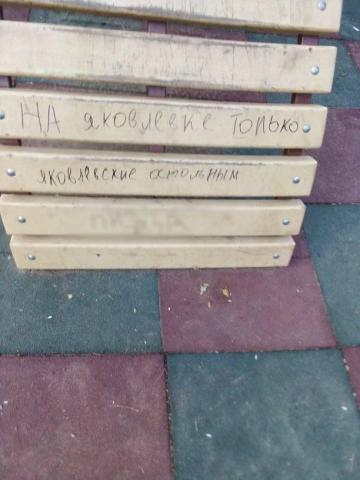 НА яковлевке ТОЛЬКО
яковлевские остольным